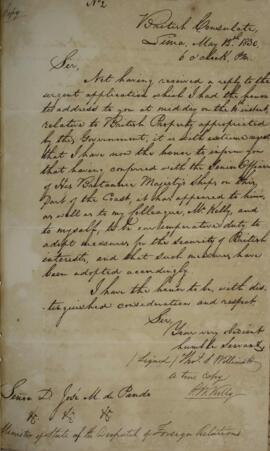 Copy
No. 2
British Consulate,
Lima, May 12th 1830,
6 o'clock, Pm.
Sir,
Not having received a reply to the
urgent application which I had the honor
to address to you at midday on the 11th instant
relative to British Property appropriated
by the Government, it is with extreme regret
that I have now the honor to inform you
that having conferred with the Senior Officer
of His Britannic Majesty's Ships on this
Part of the Coast, it has appeared to him,
as well as to my Colleague, Mr Kelly, and
to myself, to be our imperative duty to
adopt measures for the security of British
interests, and that such measures have
been adopted accordingly.
I have the honor to be, with dis-
tinguished consideration and respect
Sir,
Your very obedient
humble Servant
(Signed) Thos. S. Willimott
A true Copy
Kelly
Señor D. José M. de Pando
&c &c &c
Minister of State of the Despatch of Foreign Relations